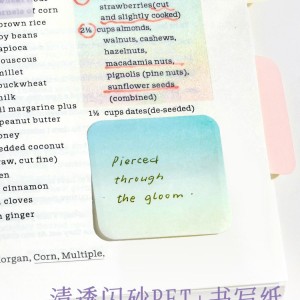 strawberries(cut
and slightly cooked)
2½ cups almonds,
walnuts, cashews,
hazelnuts,
macadamia nuts,
pignolis (pine nuts),
sunflower seeds
(combined)
1½ cups dates(de-seeded)
of corn
brown rice
oy beans
apioca
ouscous
millet
buckwheat
milk
il margarine plus
peanut butter
oney
edded coconut
raw, cut fine)
en
cinnamon
cloves
n ginger
Pierced
through
the gloom.
organ, Corn, Multiple,
清透闪砂PET，书写纸